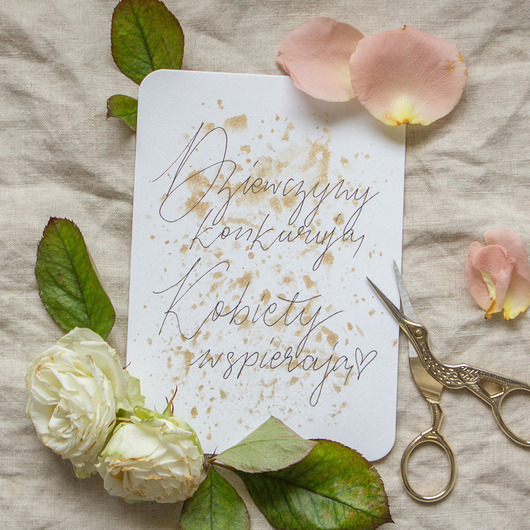 Dziewczyny
konkurują,
Kobiety
wspierają♡